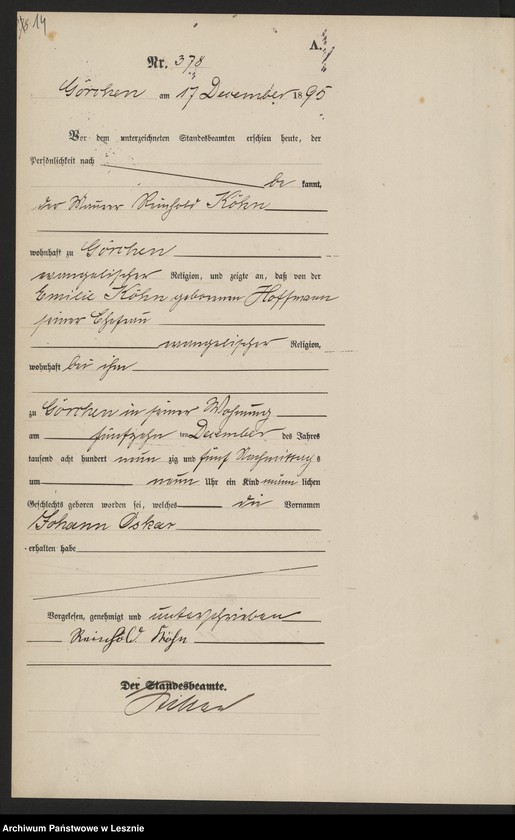 14
A.
Nr. 378
Görchen am 17 December 1895
Vor dem unterzeichneten Standesbeamten erschien heute, der
Persönlichkeit nach
be kannt,
der Maurer Reinhold Köhn
wohnhaft zu Görchen
evangelischer Religion, und zeigte an, daß von der
Emilie Köhn geborenen Hoffmann
seiner Ehefrau
evangelischer Religion,
wohnhaft bei ihm
zu Görchen in seiner Wohnung
am fünfzehn ten December des Jahres
tausend acht hundert neun zig und fünf Nachmittags
um neun Uhr ein Kind männ lichen
Geschlechts geboren worden sei, welches die Vornamen
Johann Oskar
erhalten habe
Vorgelesen, genehmigt und unterschrieben
Reinhold Köhn
Der Standesbeamte.
Archiwum Państwowe w Lesznie